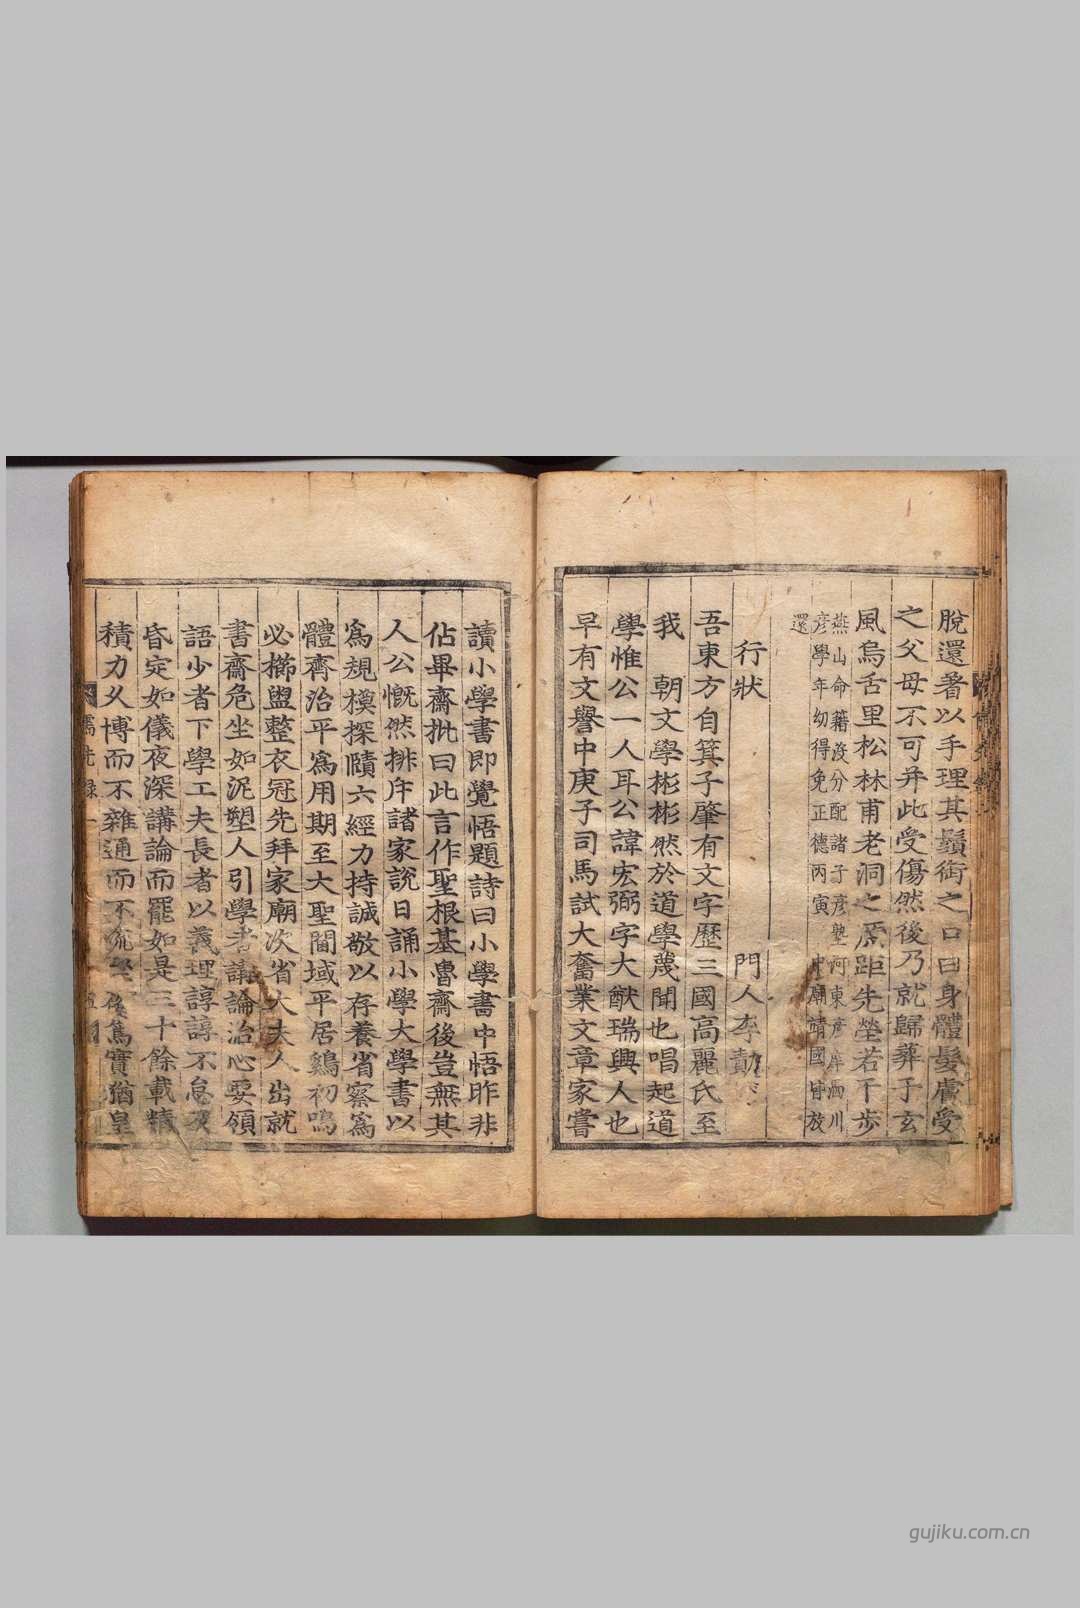 脫還著以手理其鬚銜之口曰身體髮膚受
之父母不可并此受傷然後乃就歸葬于玄
風烏舌里松林甫老洞之原距先塋若干步
燕山命籍沒分配諸子彦塾河東彦庠泗川
彦學年幼得免正德丙寅 中廟靖國皆放
還
行狀 門人李勣
吾東方自箕子肇有文字歷三國高麗氏至
我 朝文學彬彬然於道學蔑聞也唱起道
學惟公一人耳公諱宏弼字大猷瑞興人也
早有文譽中庚子司馬試大奮業文章家嘗
讀小學書即覺悟題詩曰小學書中悟昨非
佔畢齋批曰此言作聖根基魯齋後豈無其
人公慨然排斥諸家說日誦小學大學書以
爲規模探賾六經力持誠敬以存養省察爲
體齊治平爲用期至大聖閫域平居鷄初鳴
必櫛盥整衣冠先拜家廟次省大夫人出就
書齋危坐如泥塑人引學者講論治心要領
語少者下學工夫長者以義理諄諄不怠
昏定如儀夜深講論而罷如是三十餘載精
積力久博而不雜通而不流 篤實猶皇
儒先錄一
gujiku.com.cn